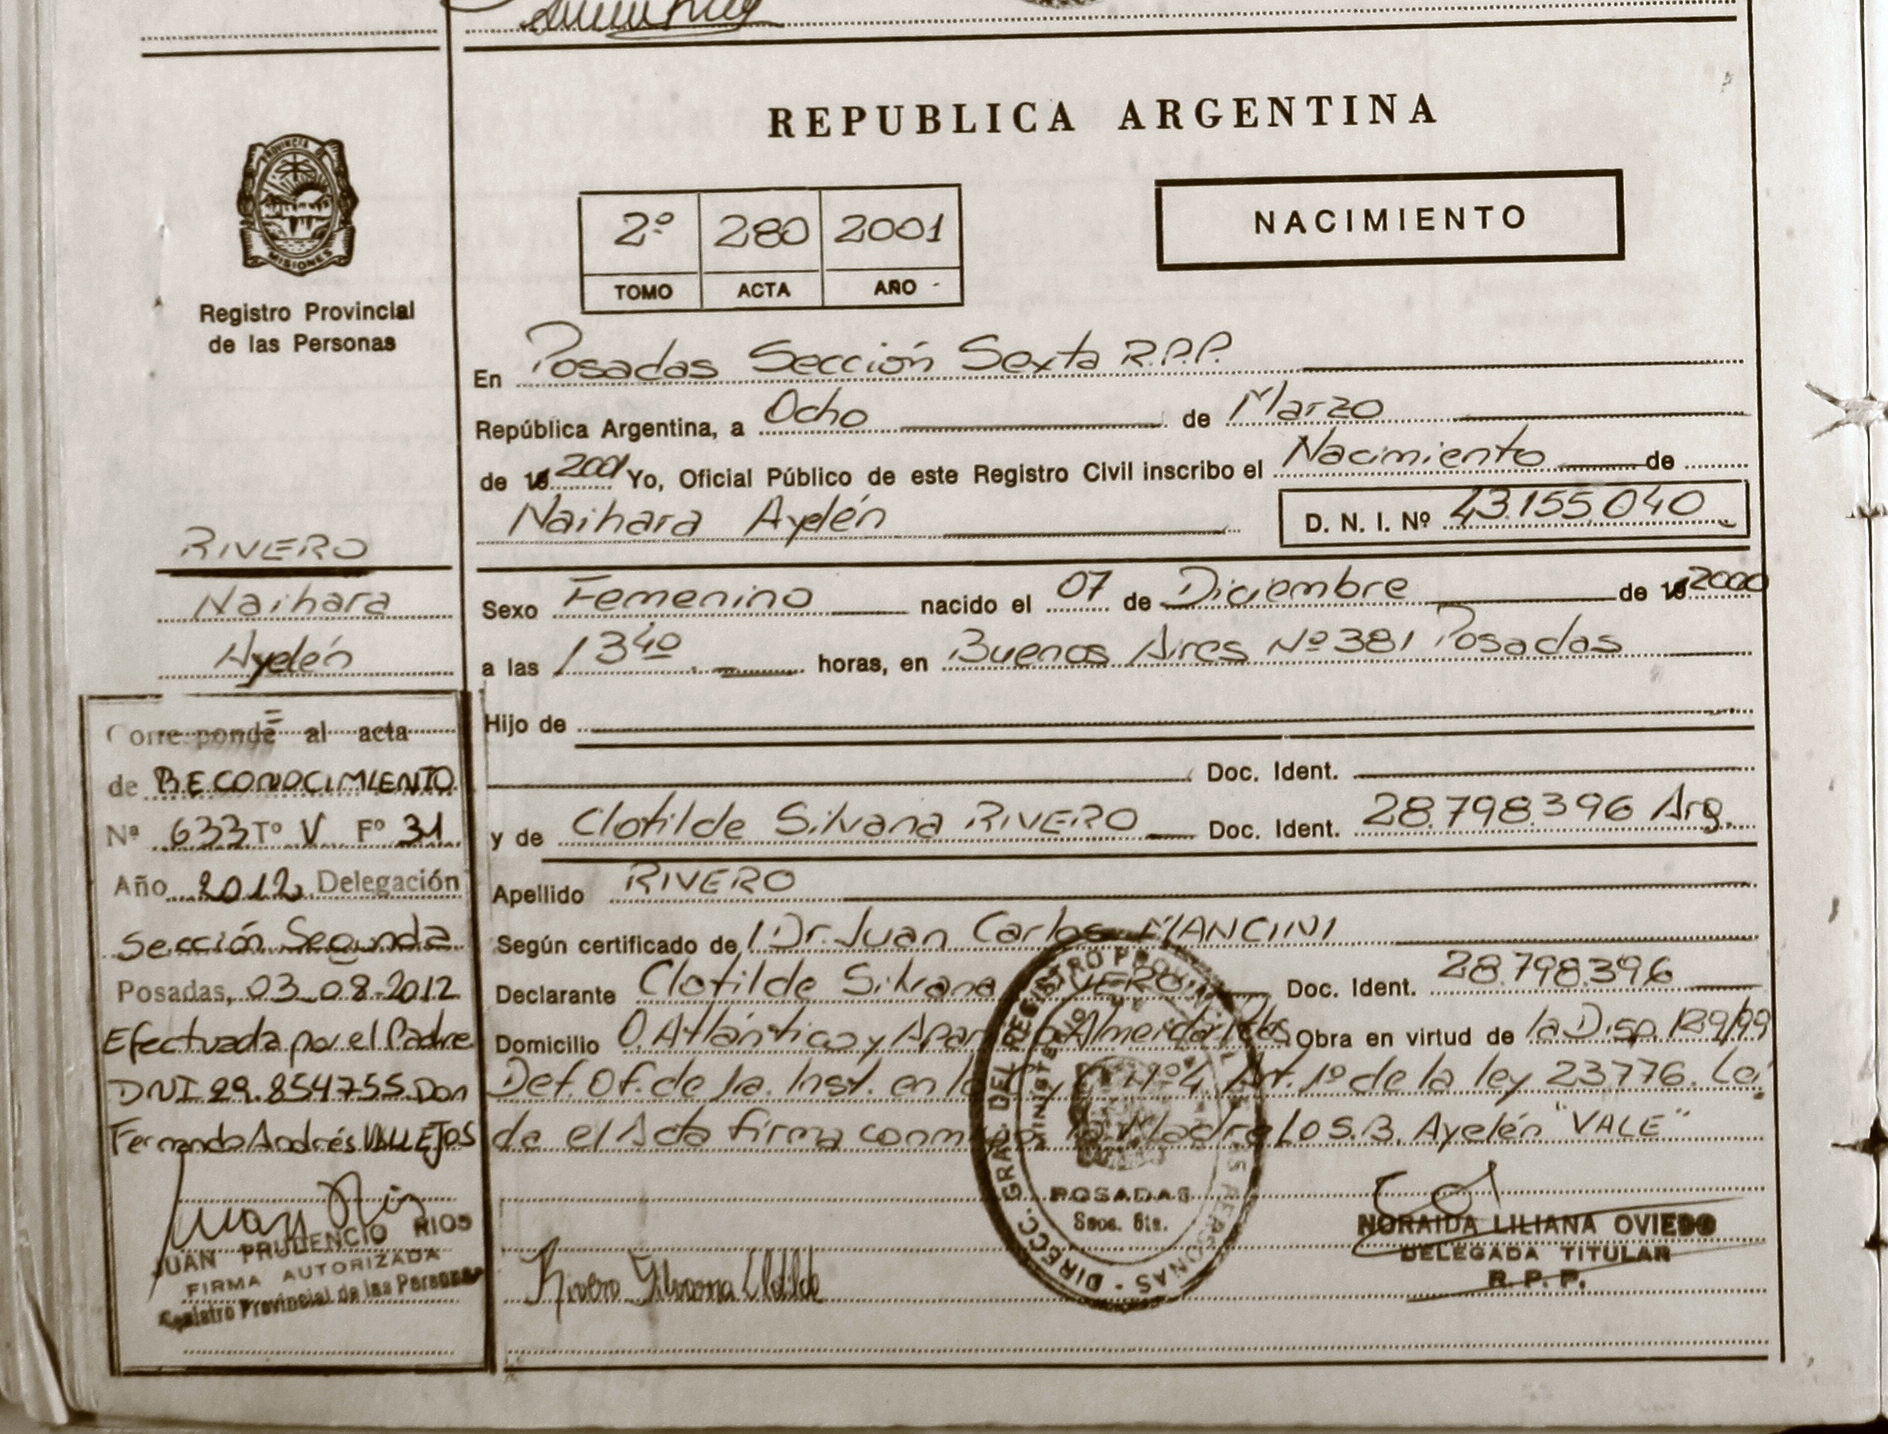 REPUBLICA ARGENTINA
PROVINCIA DE
MISIONES
Registro Provincial
de las Personas
2º 280 2001
TOMO ACTA AÑO
NACIMIENTO
En Posadas Sección Sexta R.P.P.
República Argentina, a Ocho de Marzo
de 19 2001 Yo, Oficial Público de este Registro Civil inscribo el Nacimiento de
Naihara Ayelén D. N. I. Nº 43.155.040
RIVERO
Naihara
Ayelén
Sexo Femenino nacido el 07 de Diciembre de 19 2000
a las 13 40 horas, en Buenos Aires Nº 381 Posadas
Hijo de
Doc. Ident.
y de Clotilde Silvana RIVERO Doc. Ident. 28.798.396 Arg.
Apellido RIVERO
Según certificado de Dr. Juan Carlos MANCINI
Declarante Clotilde Silvana RIVERO Doc. Ident. 28.798.396
Domicilio O. Atlántico y Almeida Obra en virtud de la Disp. 189/99
Def. Of. de 1a. Inst. en lo Nº 4 Art. 1º de la ley 23776. Leí
da el Acta firma conmigo la Madre LO S.B. Ayelén "VALE"
Corresponde al acta
de RECONOCIMIENTO
Nº 633 Tº V Fº 31
Año 2012 Delegación
Sección Segunda
Posadas, 03-08-2012
Efectuada por el Padre
DNI 29.854755 Don
Fernando Andrés VALLEJOS
JUAN PRUDENCIO RIOS
FIRMA AUTORIZADA
Registro Provincial de las Personas
Rivero Silvana Clotilde
DIRECC. GRAL. DEL REGISTRO PROVINCIAL DE LAS PERSONAS
POSADAS
Secc. 6ta.
NORAIDA LILIANA OVIEDO
DELEGADA TITULAR
R. P. P.